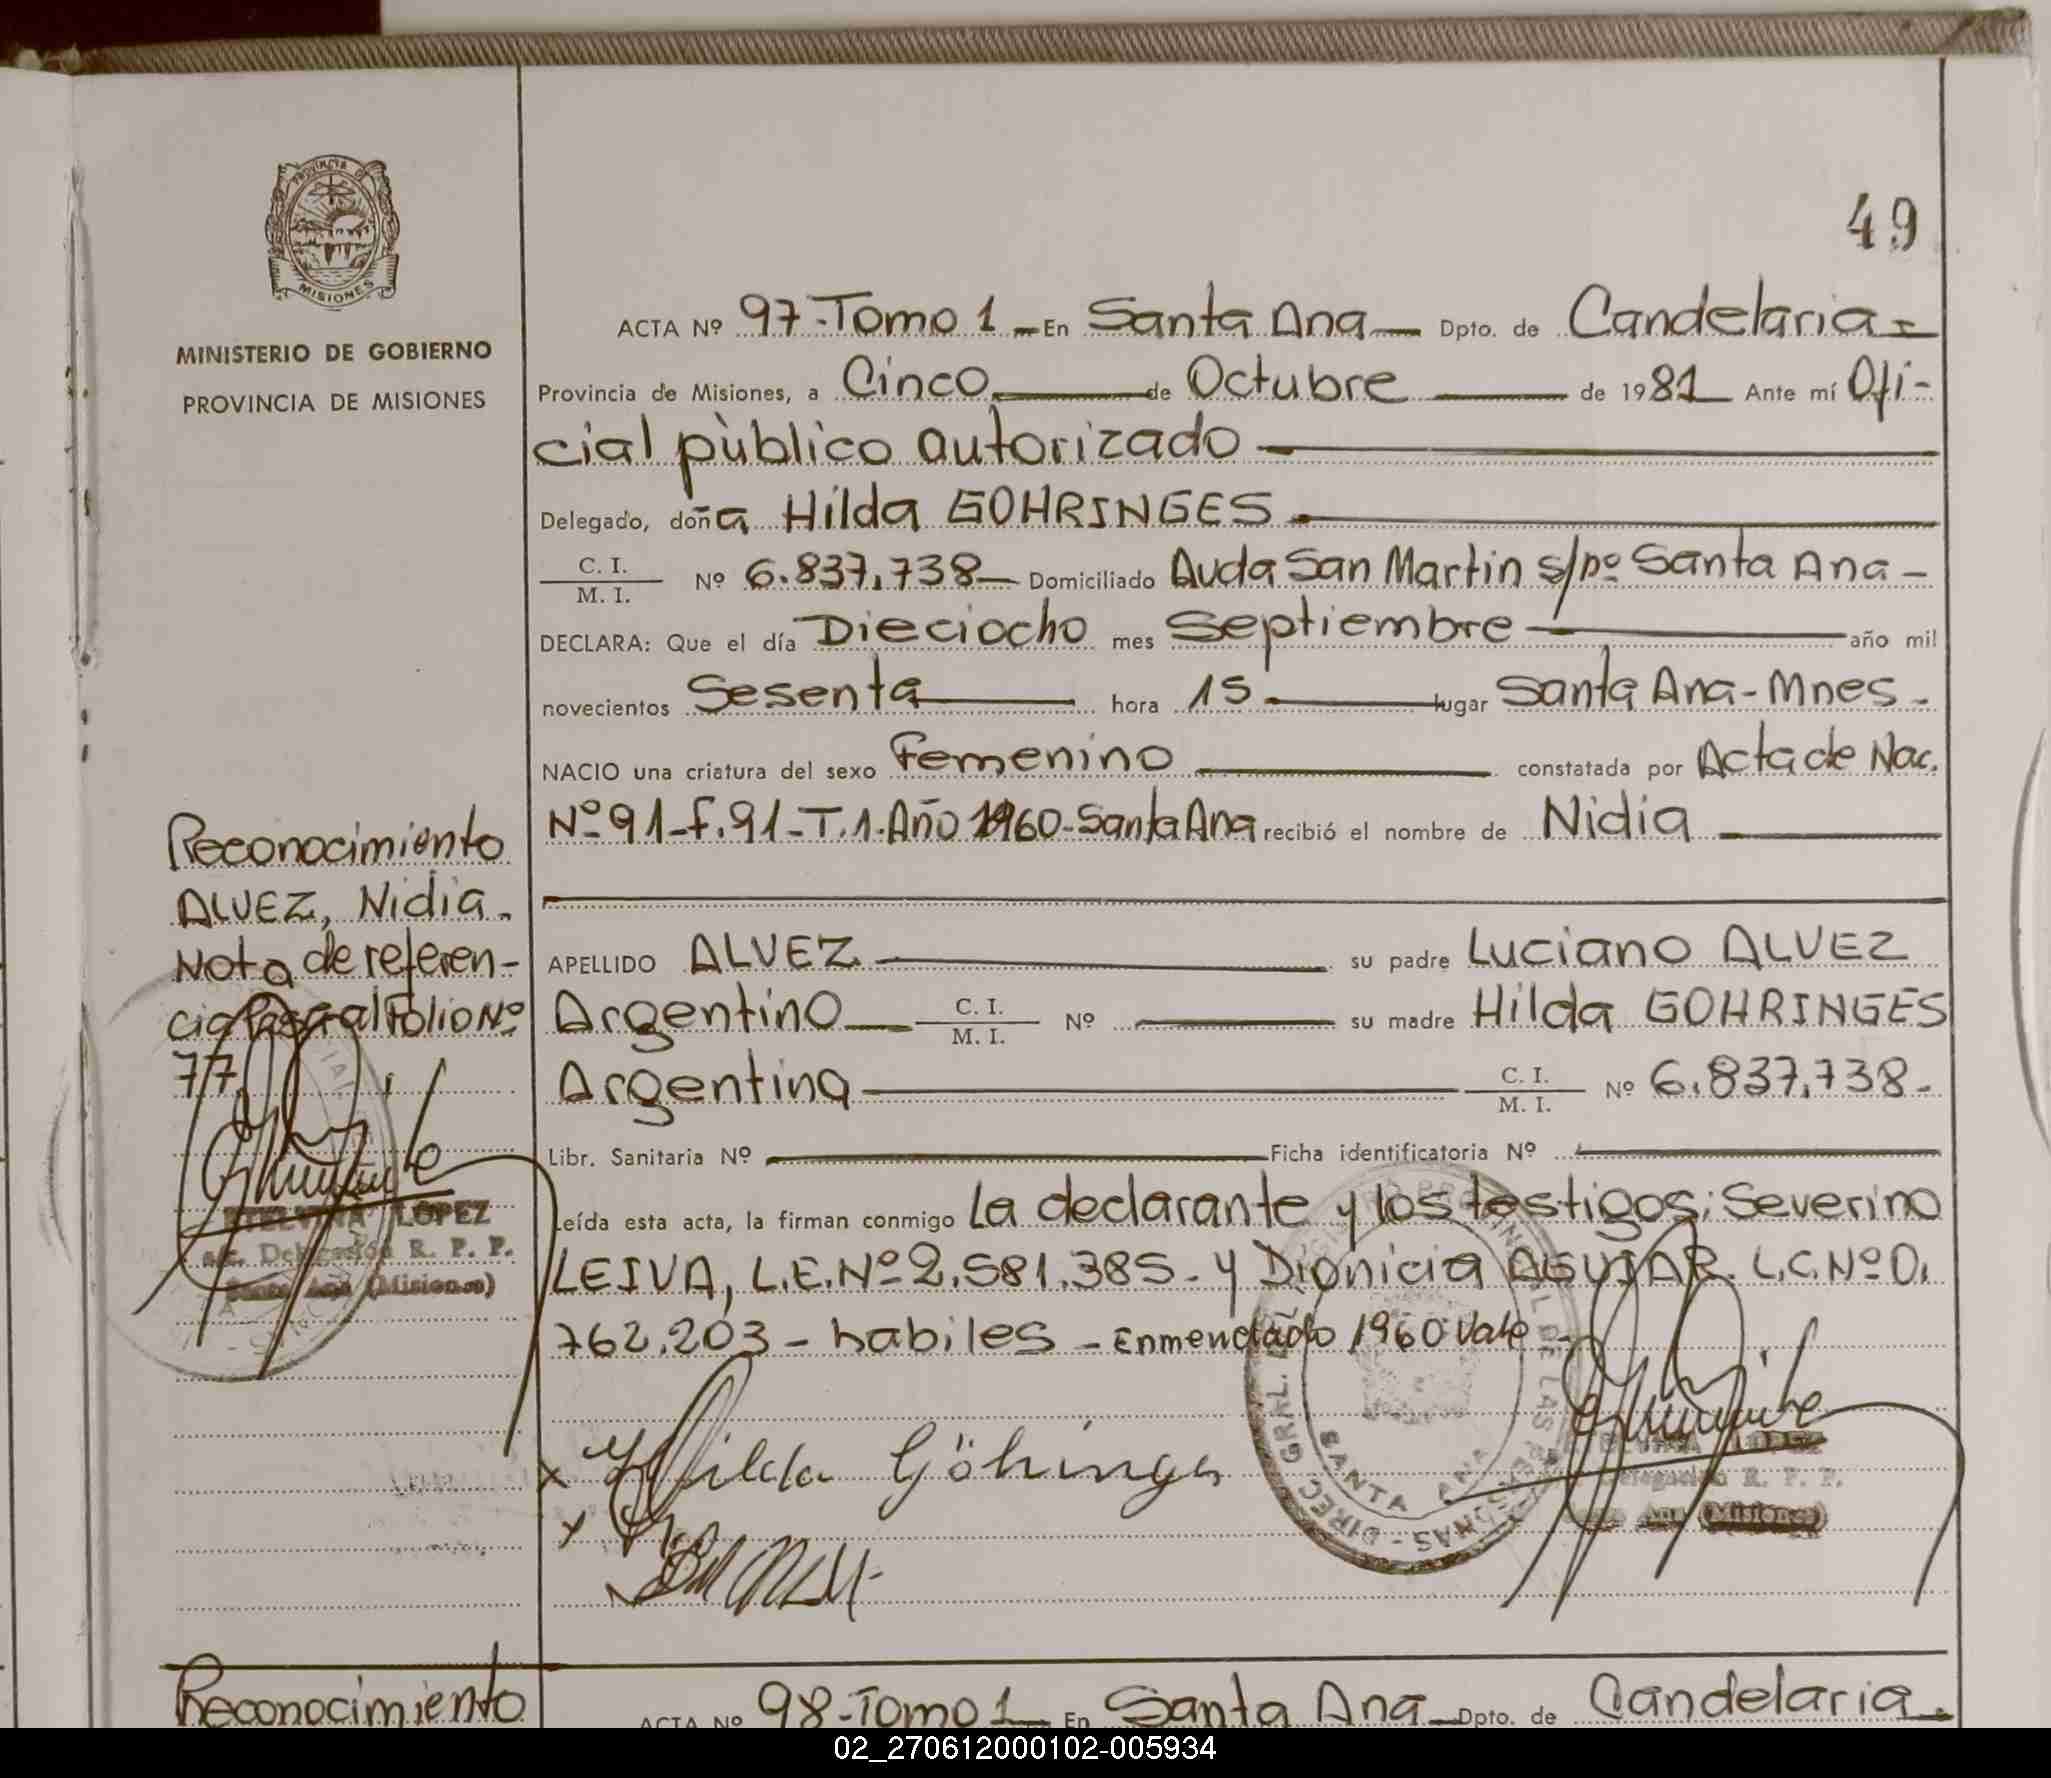 49
Provincia de
MISIONES
MINISTERIO DE GOBIERNO
PROVINCIA DE MISIONES
ACTA Nº 97-Tomo 1 - En Santa Ana - Dpto. de Candelaria -
Provincia de Misiones, a Cinco de Octubre de 1981 Ante mí Ofi-
cial pùblico autorizado
Delegado, doña Hilda GOHRINGES
C. I.
M. I.
Nº 6.837.738 - Domiciliado Avda San Martin s/nº Santa Ana -
DECLARA: Que el día Dieciocho mes Septiembre año mil
novecientos Sesenta hora 15 lugar Santa Ana - Mnes -
NACIO una criatura del sexo Femenino constatada por Acta de Nac.
Nº 91-F.91-T.1-Año 1960-Santa Ana recibió el nombre de Nidia
APELLIDO ALVEZ su padre Luciano ALVEZ
Argentino C. I. M. I. Nº su madre Hilda GOHRINGES
Argentina C. I. M. I. Nº 6.837.738-
Libr. Sanitaria Nº Ficha identificatoria Nº
Leída esta acta, la firman conmigo La declarante y los testigos: Severino
LEIVA, L.E.Nº 2.581.385- y Dionicia AGUIAR. L.C.Nº 0.
762.203 - habiles - Enmendado 1960 Vale -
x Hilda Göhringes
x
DIREC GRAL. DEL REGISTRO PROVINCIAL DE LAS PERSONAS -
SANTA ANA
LOPEZ
Delegación R. P. P.
Santa Ana (Misiones)
Reconocimiento
ALVEZ, Nidia.
Nota de referen-
cia Pasa al Folio Nº
77.
ETELVINA LOPEZ
a/c. Delegación R. P. P.
Santa Ana (Misiones)
Reconocimiento
ACTA Nº 98-Tomo 1 - En Santa Ana - Dpto. de Candelaria.
02_270612000102-005934